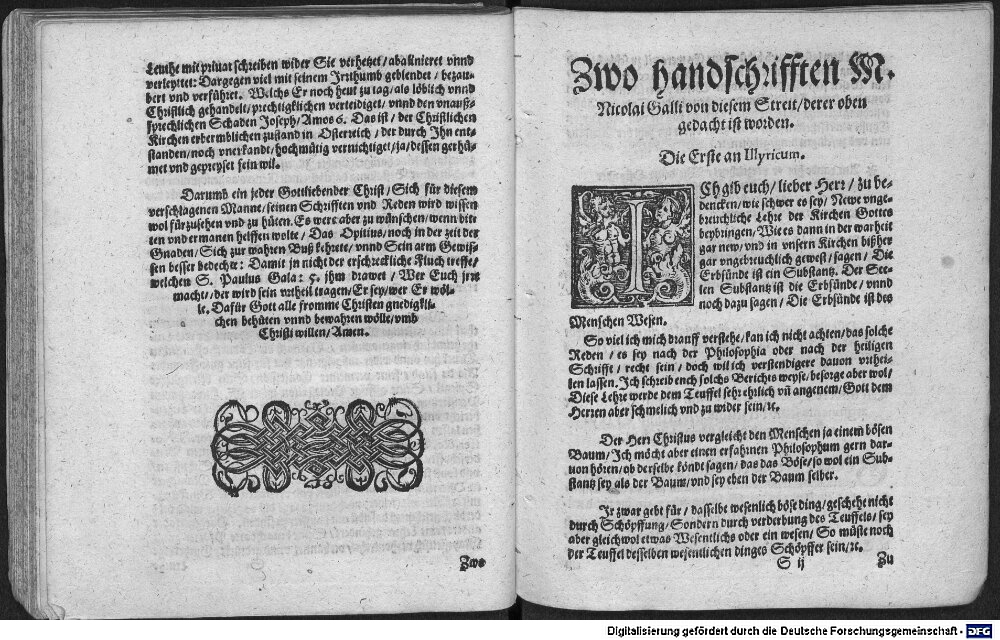 Leuthe mit priuat schreiben wider Sie verhetzet / abalinieret vnnd
verleyttet: Dargegen viel mit seinem Irrthumb geblendet / bezau-
bert vnd verführet. Welchs Er noch heut zu tag / als löblich vnnd
Christlich gehandelt / prechtigklichen verteidiget / vnnd den vnauß-
sprechlichen Schaden Joseph / Amos 6. Das ist / der Christlichen
Kirchen erbermblichen zustand in Osterreich / der durch Ihn ent-
standen / noch vnerkandt / hochmütig vernichtiget / ja / dessen gerhü-
met vnd gepreyset sein wil.
Darumb ein jeder Gottliebender Christ / Sich für diesem
verschlagenen Manne / seinen Schrifften vnd Reden wird wissen
wol fürzusehen vnd zu hüten. Es were aber zu wünschen / wenn bit-
ten vnd ermanen helffen wolte / Das Opitius / noch in der zeit der
Gnaden / Sich zur wahren Buß kehrete / vnnd Sein arm Gewis-
sen besser bedechte: Damit jn nicht der erschreckliche Fluch treffe /
welchen S. Paulus Gala: 5. jhm drawet / Wer Euch jrre
macht / der wird sein vrtheil tragen / Er sey / wer Er wöl-
le. Dafür Gott alle fromme Christen gnedigkli-
chen behüten vnnd bewahren wölle / vmb
Christi willen / Amen.
Zwo
Zwo handschrifften M.
Nicolai Galli von diesem Streit / derer oben
gedacht ist worden.
Die Erste an Illyricum.
ICh gib euch / lieber Herr / zu be-
dencken / wie schwer es sey / Newe vnge-
breuchliche Lehre der Kirchen Gottes
beybringen / Wie es dann in der warheit
gar new / vnd in vnsern Kirchen bißher
gar vngebreuchlich gewest / sagen / Die
Erbsünde ist ein Substantz. Der See-
len Substantz ist die Erbsünde / vnnd
noch dazu sagen / Die Erbsünde ist des
Menschen Wesen.
So viel ich mich drauff verstehe / kan ich nicht achten / das solche
Reden / es sey nach der Philosophia oder nach der heiligen
Schrifft / recht sein / doch wil ich verstendigere dauon vrthei-
len lassen. Ich schreib euch solchs Berichts weyse / besorge aber wol /
Diese Lehre werde dem Teuffel sehr ehrlich vñ angenem / Gott dem
Herren aber schmelich vnd zu wider sein / ꝛc.
Der Herr Christus vergleicht den Menschen ja einem bösen
Baum / Ich möcht aber einen erfahrnen Philosophum gern dar-
uon hören / ob derselbe köndt sagen / das das Böse / so wol ein Sub-
stantz sey als der Baum / vnd sey eben der Baum selber.
Ir zwar gebt für / dasselbe wesenlich böse ding / geschehe nicht
durch Schöpffung / Sondern durch verderbung des Teuffels / sey
aber gleichwol etwas Wesentlichs oder ein wesen / So müste noch
der Teuffel desselben wesentlichen dinges Schöpffer sein / ꝛc.
S ij
Zu
Digitalisierung gefördert durch die Deutsche Forschungsgemeinschaft - DFG